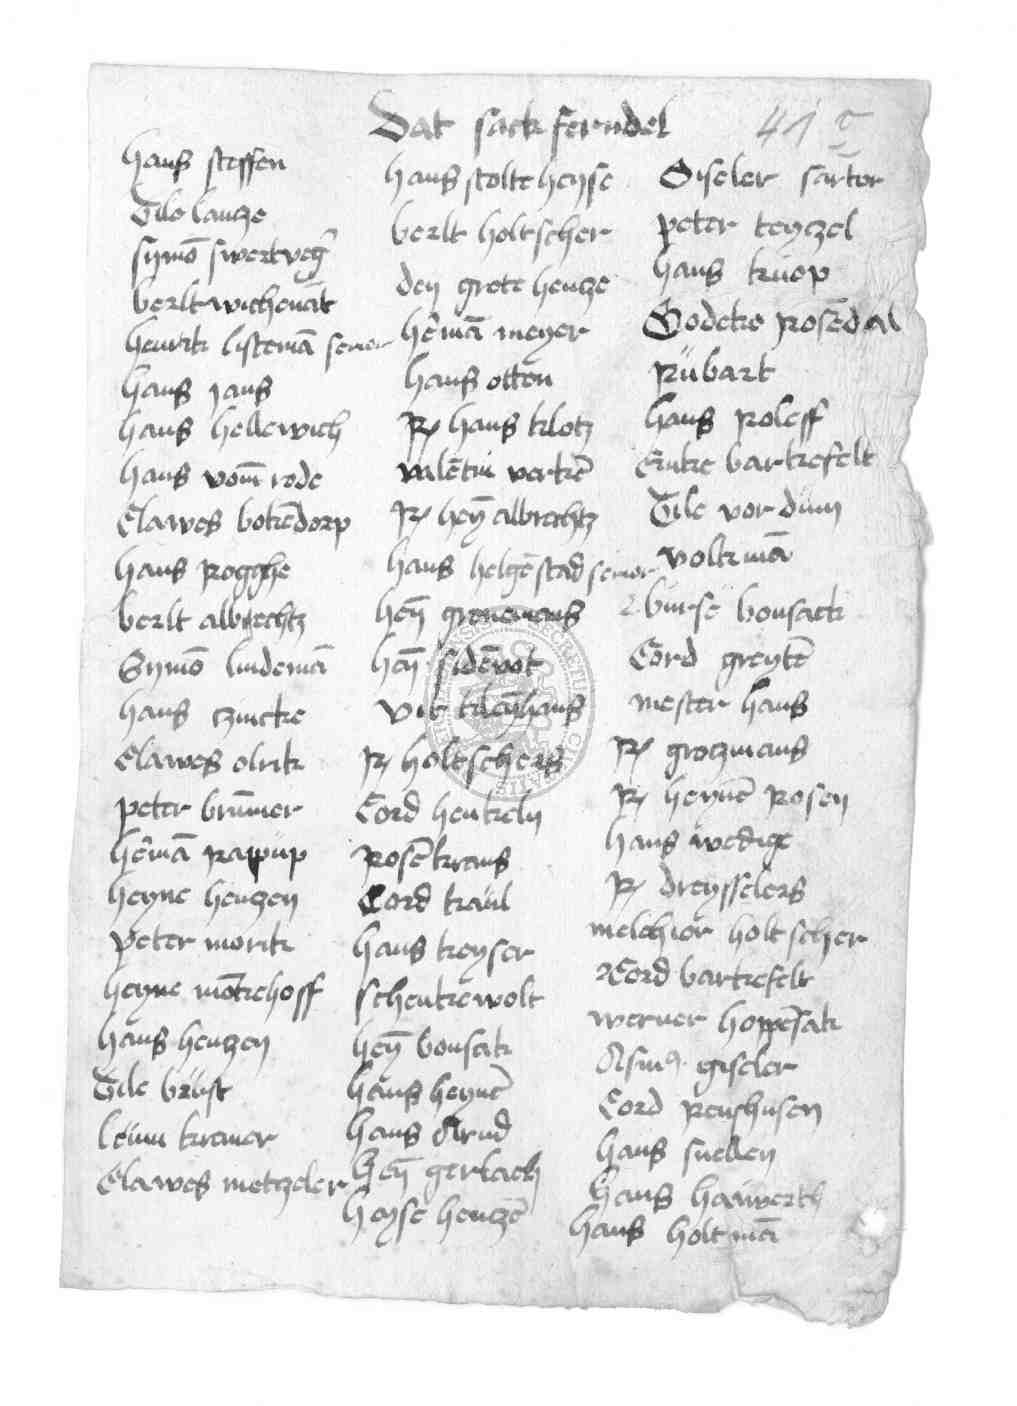 Dat sack ferndel
41
hans steffen
Tile lantze
symō swertveg
berlt wichenāt
henrik listemā senior
hans jans
hans hellewich
hans vom rode
Clawes botēdorp
hans rogghe
berlt albrechtz
Symō lindemā
hans tzincke
Clawes olrik
peter brūmer
hēmā papup
heyne hentzen
peter morik
heyne mōkehoff
hans hentzen
Tile brüst
kremer
Clawes metzeler
hans stolte heyse
berlt holtscher
den grote hentze
hēmā meyer
hans otten
Rͤ hans klotz
valētin verkē
Rͤ heñ albrechtz
hans helgēstad senior
heñ grenemans
heñ sidēvot
vit kleyhans
Rͤ holtschers
Cord henkeln
Rosēkrans
Cord kraul
hans keyser
schenkewolt
heñ bonsak
hans heynē
hans Arnd
heñ gerlach
heyse hentzē
Giseler sartor
peter teyczel
hans krüep
Godeke Rosēdal
Rübart
hans Roleff
Ernke bartkefelt
Tile vor düm
volkmā
bürse bonsack
Cord greytē
mester hans
Rͤ grotzmans
Rͤ heynē Rosen
hans wedige
Rͤ dreysselers
melchior holtscher
Cord bartkefelt
werner hoppēsak
Asmꝯ giseler
Cord renshusen
hans snellen
hans hauwerth
hans holtmā